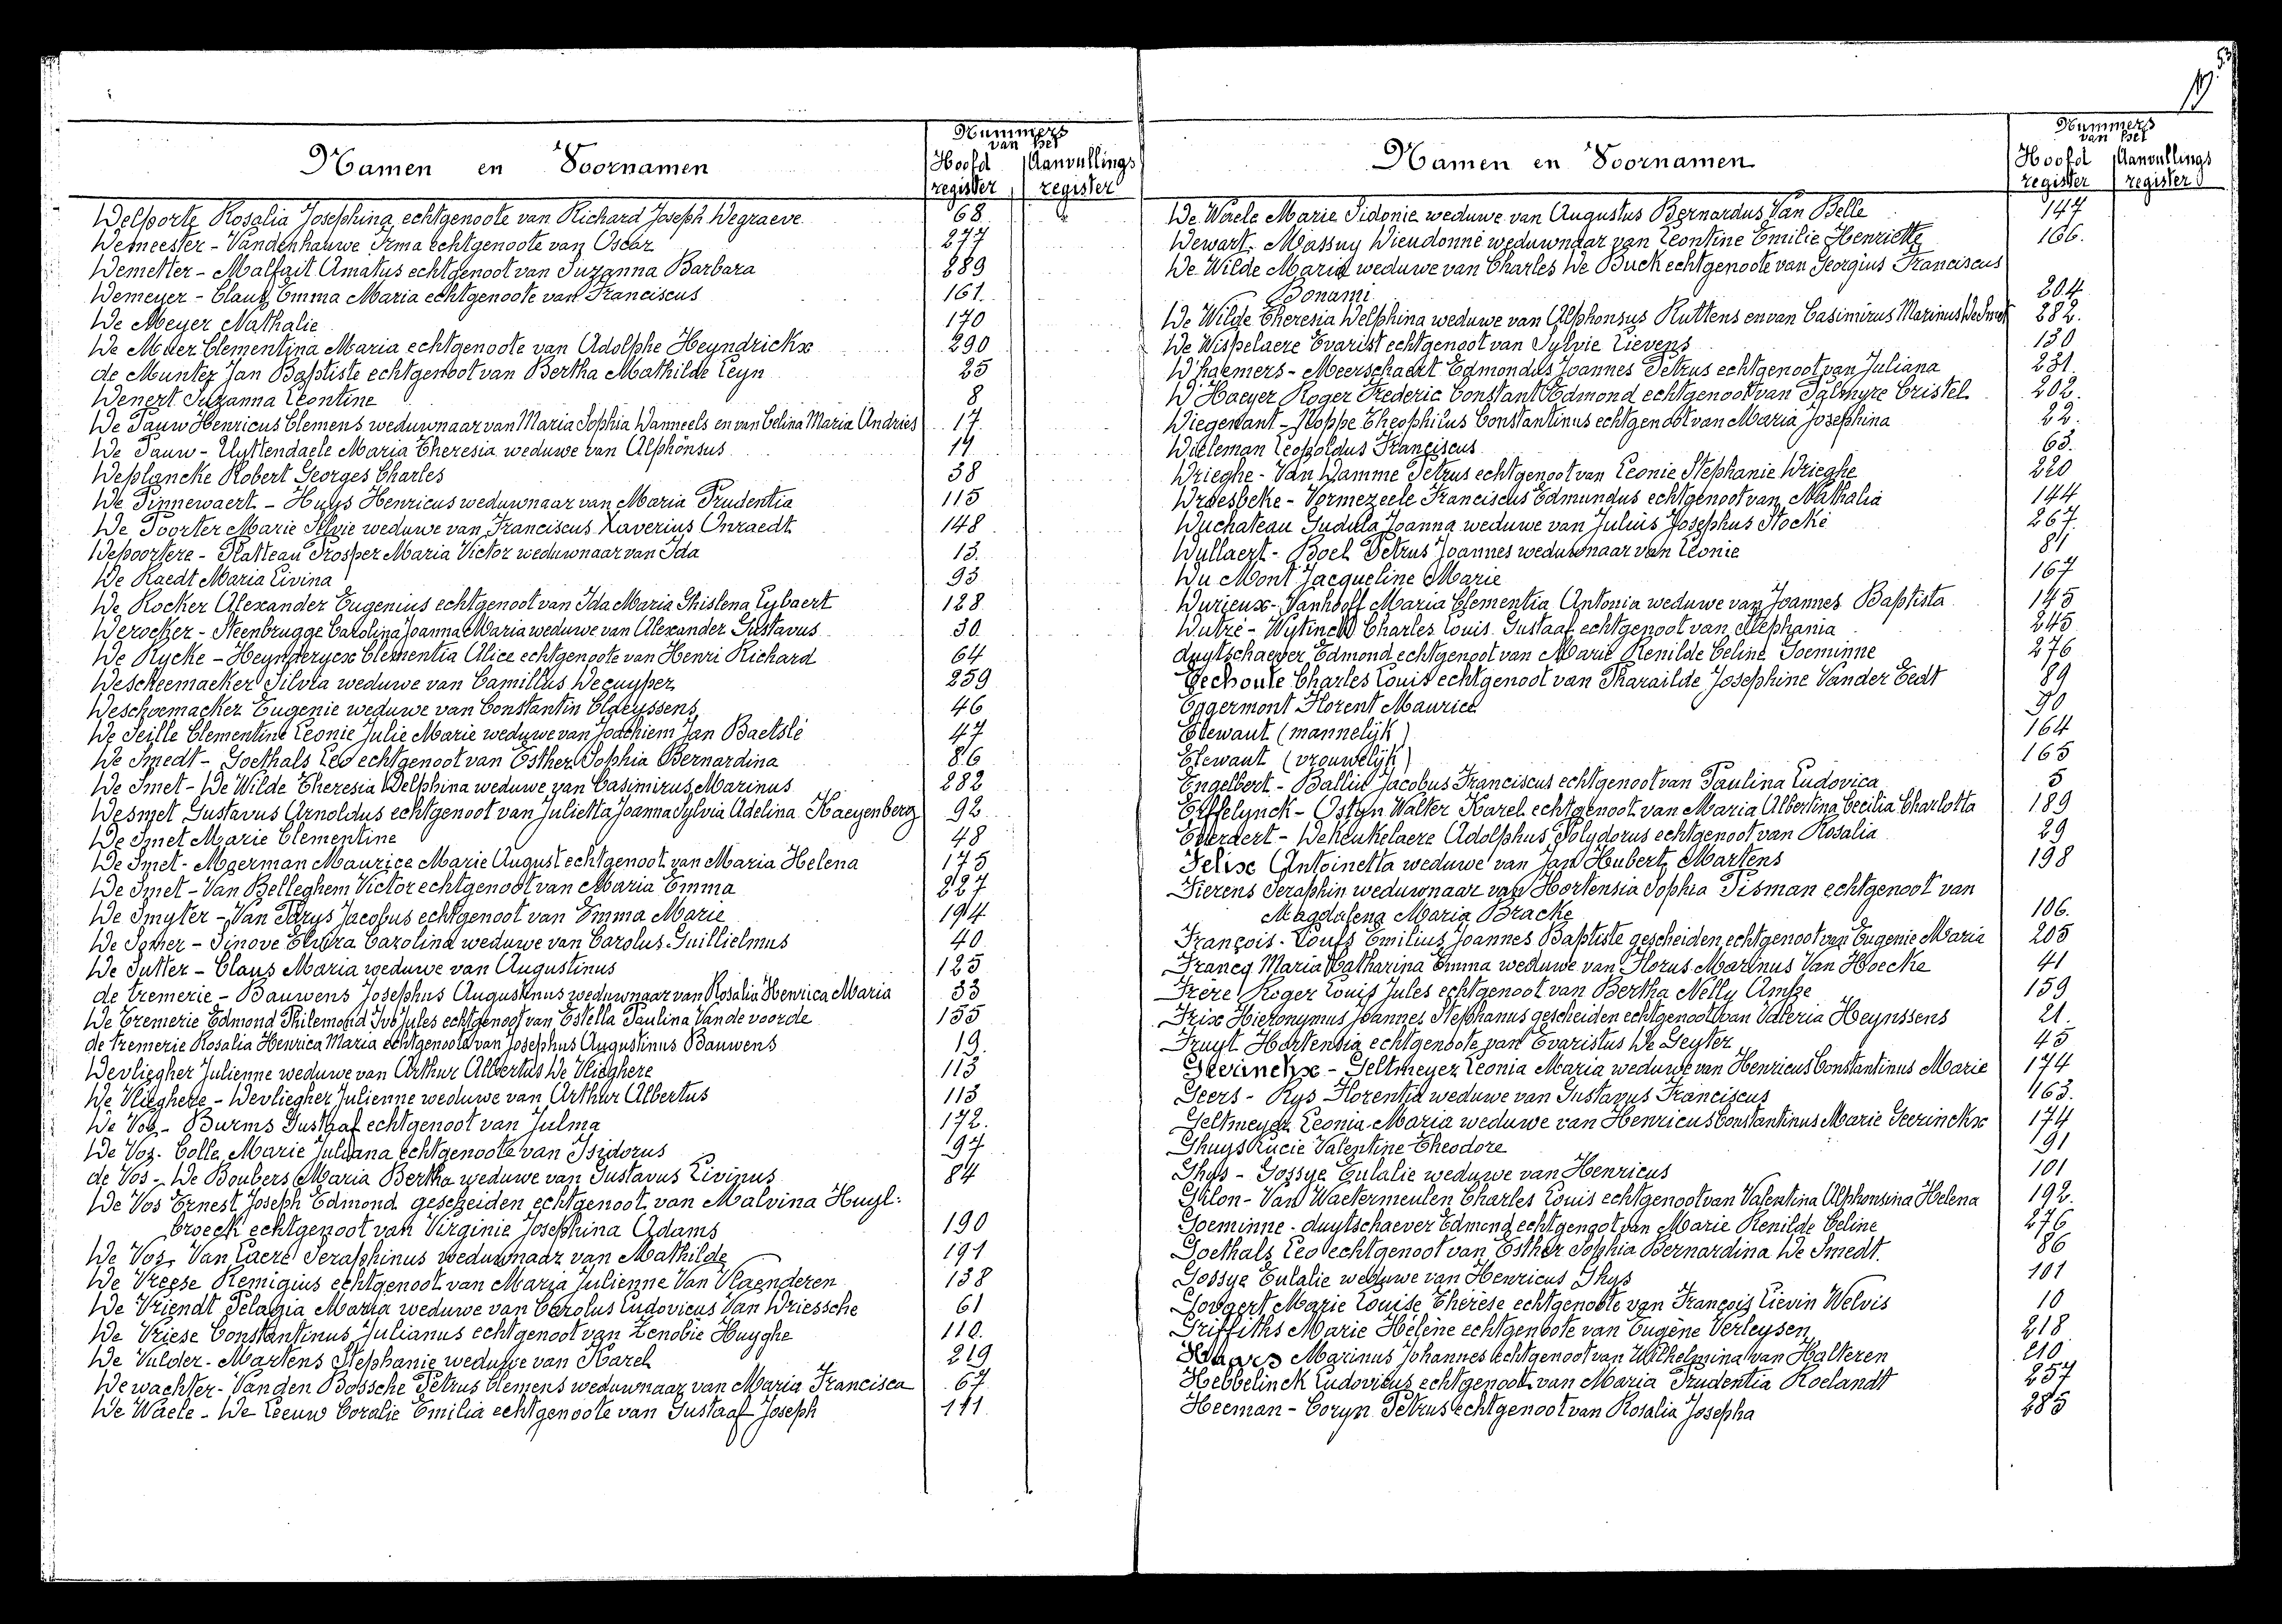 Namen en Voornamen
Nummers
van het
Hoofd register
Aanvullings register
Delporte Rosalia Josephina echtgenoote van Richard Joseph Degraeve 68
Demeester - Vandenhauwe Irma echtgenoote van Oscar 277
Demetter - Malfait Amatus echtgenoot van Suzanna Barbara 289
Demeyer - Claus Emma Maria echtgenoote van Franciscus 161.
De Meyer Nathalie 170
De Muer Clementina Maria echtgenoote van Adolphe Heyndrickx 290
de Muntez Jan Baptiste echtgenoot van Bertha Mathilde Leyn 25
Denert Suzanna Leontine 8
De Pauw Henricus Clemens weduwnaar van Maria Sophia Danneels en van Celina Maria Andries 17.
De Pauw - Uyttendaele Maria Theresia weduwe van Alphonsus 11
Deplancke Robert Georges Charles 38
De Pinnewaert - Huys Henricus weduwnaar van Maria Prudentia 115
De Poorter Marie Silvie weduwe van Franciscus Xaverius Onraedt 148
Depoortere - Platteau Prosper Maria Victor weduwnaar van Ida 13.
De Raedt Maria Livina 93
De Rocker Alexander Eugenius echtgenoot van Ida Maria Ghislena Lybaert 128
Derocker - Steenbrugge Carolina Joanna Maria weduwe van Alexander Gustavus 30
De Rycke - Heynderycx Clementia Alice echtgenoote van Henri Richard 64
Descheemaeker Silvia weduwe van Camillus Decuyper 259
Deschoemacker Eugenie weduwe van Constantin Claeyssens 46
De Seille Clementine Leonie Julie Marie weduwe van Joachiem Jan Baetslé 47
De Smedt - Goethals Leo echtgenoot van Esther Sophia Bernardina 86
De Smet - De Wilde Theresia Delphina weduwe van Casimirus Marinus 282
Desmet Gustavus Arnoldus echtgenoot van Julietta Joanna Sylvia Adelina Haeyenberg 92
De Smet Marie Clementine 48
De Smet - Moerman Maurice Marie August echtgenoot van Maria Helena 175
De Smet - Van Belleghem Victor echtgenoot van Maria Emma 227
De Smyter - Van Parys Jacobus echtgenoot van Emma Marie 194
De Somer - Sinove Elvira Carolina weduwe van Carolus Guillielmus 40
De Sutter - Claus Maria weduwe van Augustinus 125
de tremerie - Bauwens Josephus Augustinus weduwnaar van Rosalia Henrica Maria 33
De Tremerie Edmond Philemond Ivo Jules echtgenoot van Estella Paulina Vande voorde 155
de tremerie Rosalia Henrica Maria echtgenoote van Josephus Augustinus Bauwens 19.
Devliegher Julienne weduwe van Arthur Albertus De Vlieghere 113
De Vlieghere - Devliegher Julienne weduwe van Arthur Albertus 113
De Vos - Burms Gustaaf echtgenoot van Julma 172.
De Vos - Colle Marie Juliana echtgenoote van Isidorus 97
de Vos - De Boubers Maria Bertha weduwe van Gustavus Livinus 84
De Vos Ernest Joseph Edmond gescheiden echtgenoot van Malvina Huyl:
broeck echtgenoot van Virginie Josephina Adams 190
De Vos Van Laere Seraphinus weduwnaar van Mathilde 191
De Vreese Remigius echtgenoot van Maria Julienne Van Vlaenderen 138
De Vriendt Pelagia Maria weduwe van Carolus Ludovicus Van Driessche 61
De Vriese Constantinus Julianus echtgenoot van Zenobie Huyghe 110.
De Vulder - Martens Stephanie weduwe van Karel 219
De wachter - Vanden Bossche Petrus Clemens weduwnaar van Maria Francisca 67
De Waele - De Leeuw Coralie Emilia echtgenoote van Gustaaf Joseph 111
Namen en Voornamen
Nummers
van het
Hoofd register
Aanvullings register
De Waele Marie Sidonie weduwe van Augustus Bernardus Van Belle 147
Dewart - Massuy Dieudonné weduwnaar van Leontine Emilie Henriette 166.
De Wilde Maria weduwe van Charles De Buck echtgenoote van Georgius Franciscus
Bonami 204
De Wilde Theresia Delphina weduwe van Alphonsus Ruttens en van Casimirus Marinus De Smet 282.
De Wispelaere Evarist echtgenoot van Sylvie Lievens 130
D'haemers - Meerschaert Edmondus Joannes Petrus echtgenoot van Juliana 231.
D'Haeyer Roger Frederic Constant Edmond echtgenoot van Palmyre Cristel 202.
Diegenant - Noppe Theophilus Constantinus echtgenoot van Maria Josephina 22.
Dieleman Leopoldus Franciscus 63.
Drieghe - Van Damme Petrus echtgenoot van Leonie Stephanie Drieghe 220
Droesbeke - Vormezeele Franciscus Edmundus echtgenoot van Nathalia 144
Duchateau Gudula Joanna weduwe van Julius Josephus Stocké 267.
Dullaert - Boel Petrus Joannes weduwnaar van Leonie 81
Du Mont Jacqueline Marie 167
Durieux - Vanhooff Maria Clementia Antonia weduwe van Joannes Baptista 145
Dutré - Wytinck Charles Louis Gustaaf echtgenoot van Stephania 245
duytschaever Edmond echtgenoot van Marie Renilde Celine Goeminne 276
Eechoute Charles Louis echtgenoot van Pharailde Josephine Vander Eedt 89
Eggermont Florent Maurice 90
Elewaut (mannelijk) 164
Elewaut (vrouwelijk) 165
Engelbert - Balliu Jacobus Franciscus echtgenoot van Paulina Ludovica 5
Erffelynck - Ostyn Walter Karel echtgenoot van Maria Albertina Cecilia Charlotta 189
Everaert - DeKeukelaere Adolphus Polydorus echtgenoot van Rosalia 29
Felix Antoinetta weduwe van Jan Hubert Martens 198
Fierens Seraphin weduwnaar van Hortensia Sophia Tisman echtgenoot van
Magdalena Maria Bracke 106.
François - Toufs Emilius Joannes Baptiste gescheiden echtgenoot van Eugenie Maria 205
Francq Maria Katharina Emma weduwe van Florus Marinus Van Hoecke 41
Frere Roger Louis Jules echtgenoot van Bertha Nelly Ampe 159
Frix Hieronymus Joannes Stephanus gescheiden echtgenoot van Valeria Heynssens 21.
Fruyt Hortensia echtgenoote van Evaristus De Geyter 45
Geerinckx - Geltmeyer Leonia Maria weduwe van Henricus Constantinus Marie 174
Geers - Rys Florentia weduwe van Gustavus Franciscus 163.
Geltmeyer Leonia Maria weduwe van Henricus Constantinus Marie Geerinckx 174
Ghuys Lucie Valentine Theodore 191
Ghys - Gossye Eulalie weduwe van Henricus 101
Gilon - Van Waetermeulen Charles Louis echtgenoot van Valentina Alphonsina Helena 192.
Goeminne - duytschaever Edmond echtgenoot van Marie Renilde Celine 276
Goethals Leo echtgenoot van Esther Sophia Bernardina De Smedt. 86
Gossye Eulalie weduwe van Henricus Ghys 101
Govaert Marie Louise Thérèse echtgenoote van François Lievin Delvis 10
Griffiths Marie Hélène echtgenoote van Eugène Verleysen 218
Haars Marinus Johannes echtgenoot van Wilhelmina van Halteren 210
Hebbelinck Ludovicus echtgenoot van Maria Prudentia Roelandt 257
Heeman - Coryn Petrus echtgenoot van Rosalia Josepha 285